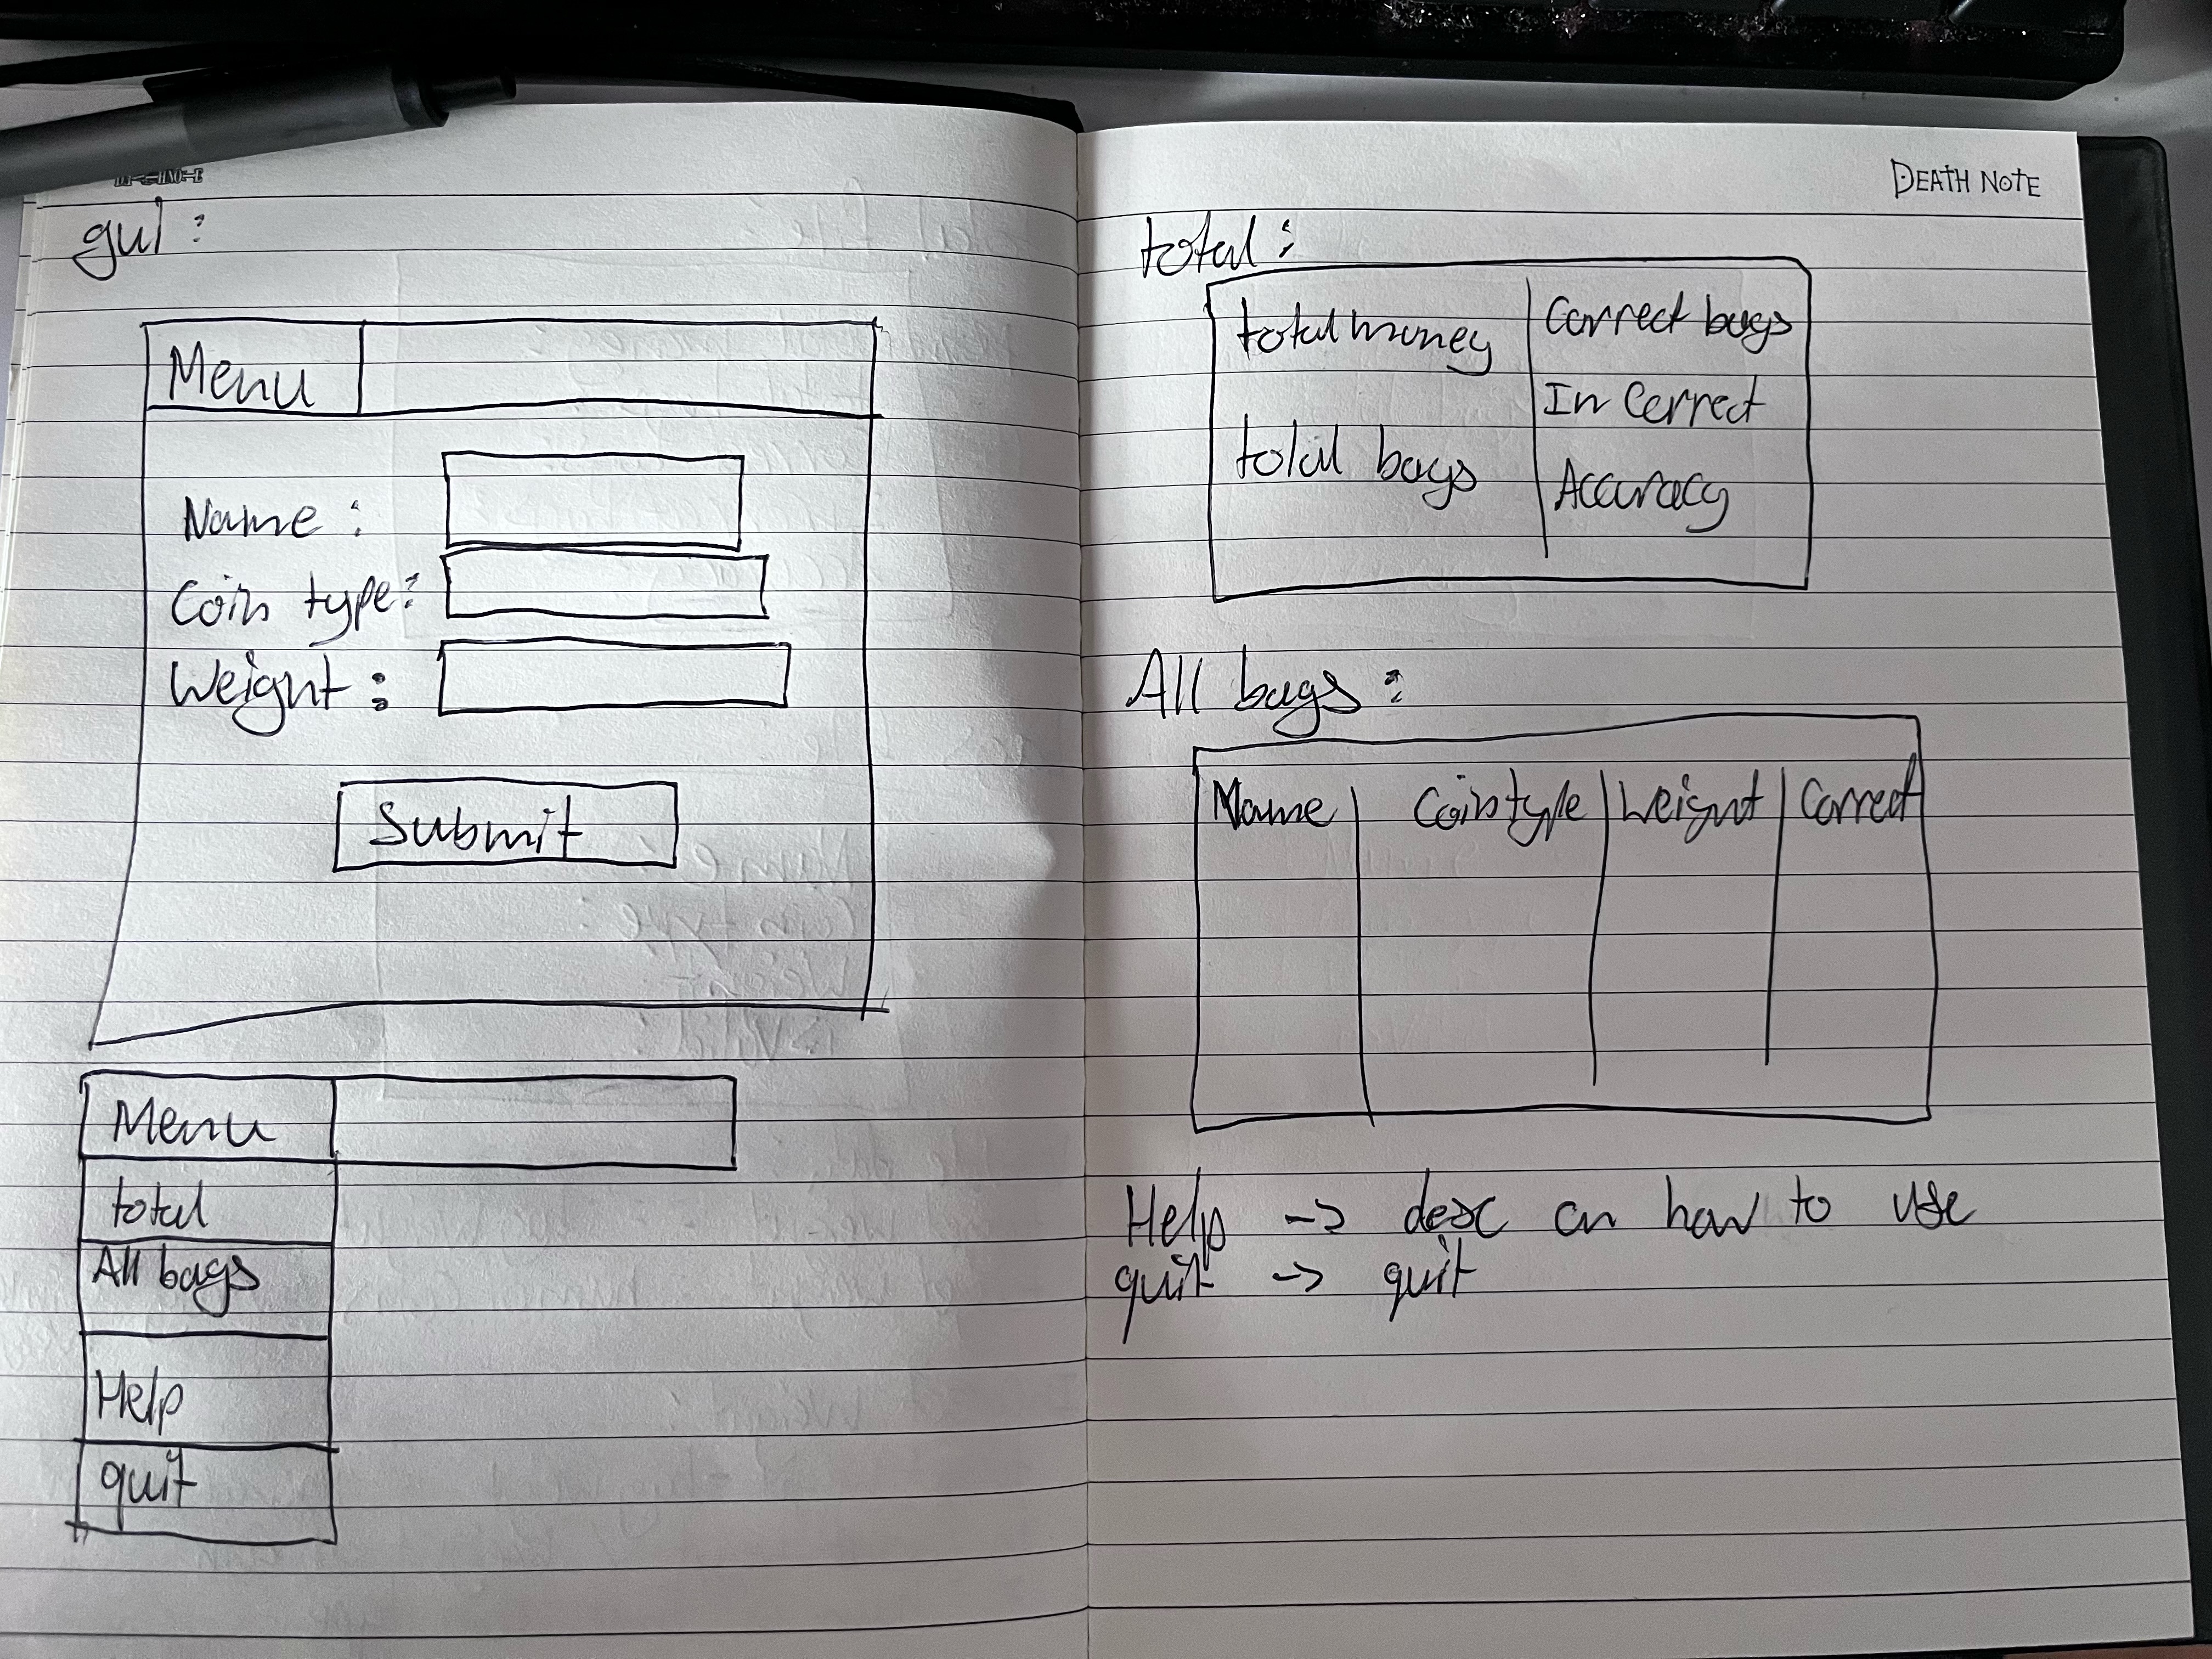 gui :
Menu
Name :
Coin type :
Weight :
Submit
Menu
total
All bags
Help
quit
DEATH NOTE
total :
total money
total bags
Correct bags
In Correct
Accuracy
All bags :
Name | Coin type | Weight | Correct
Help -> desc on how to use
quit -> quit